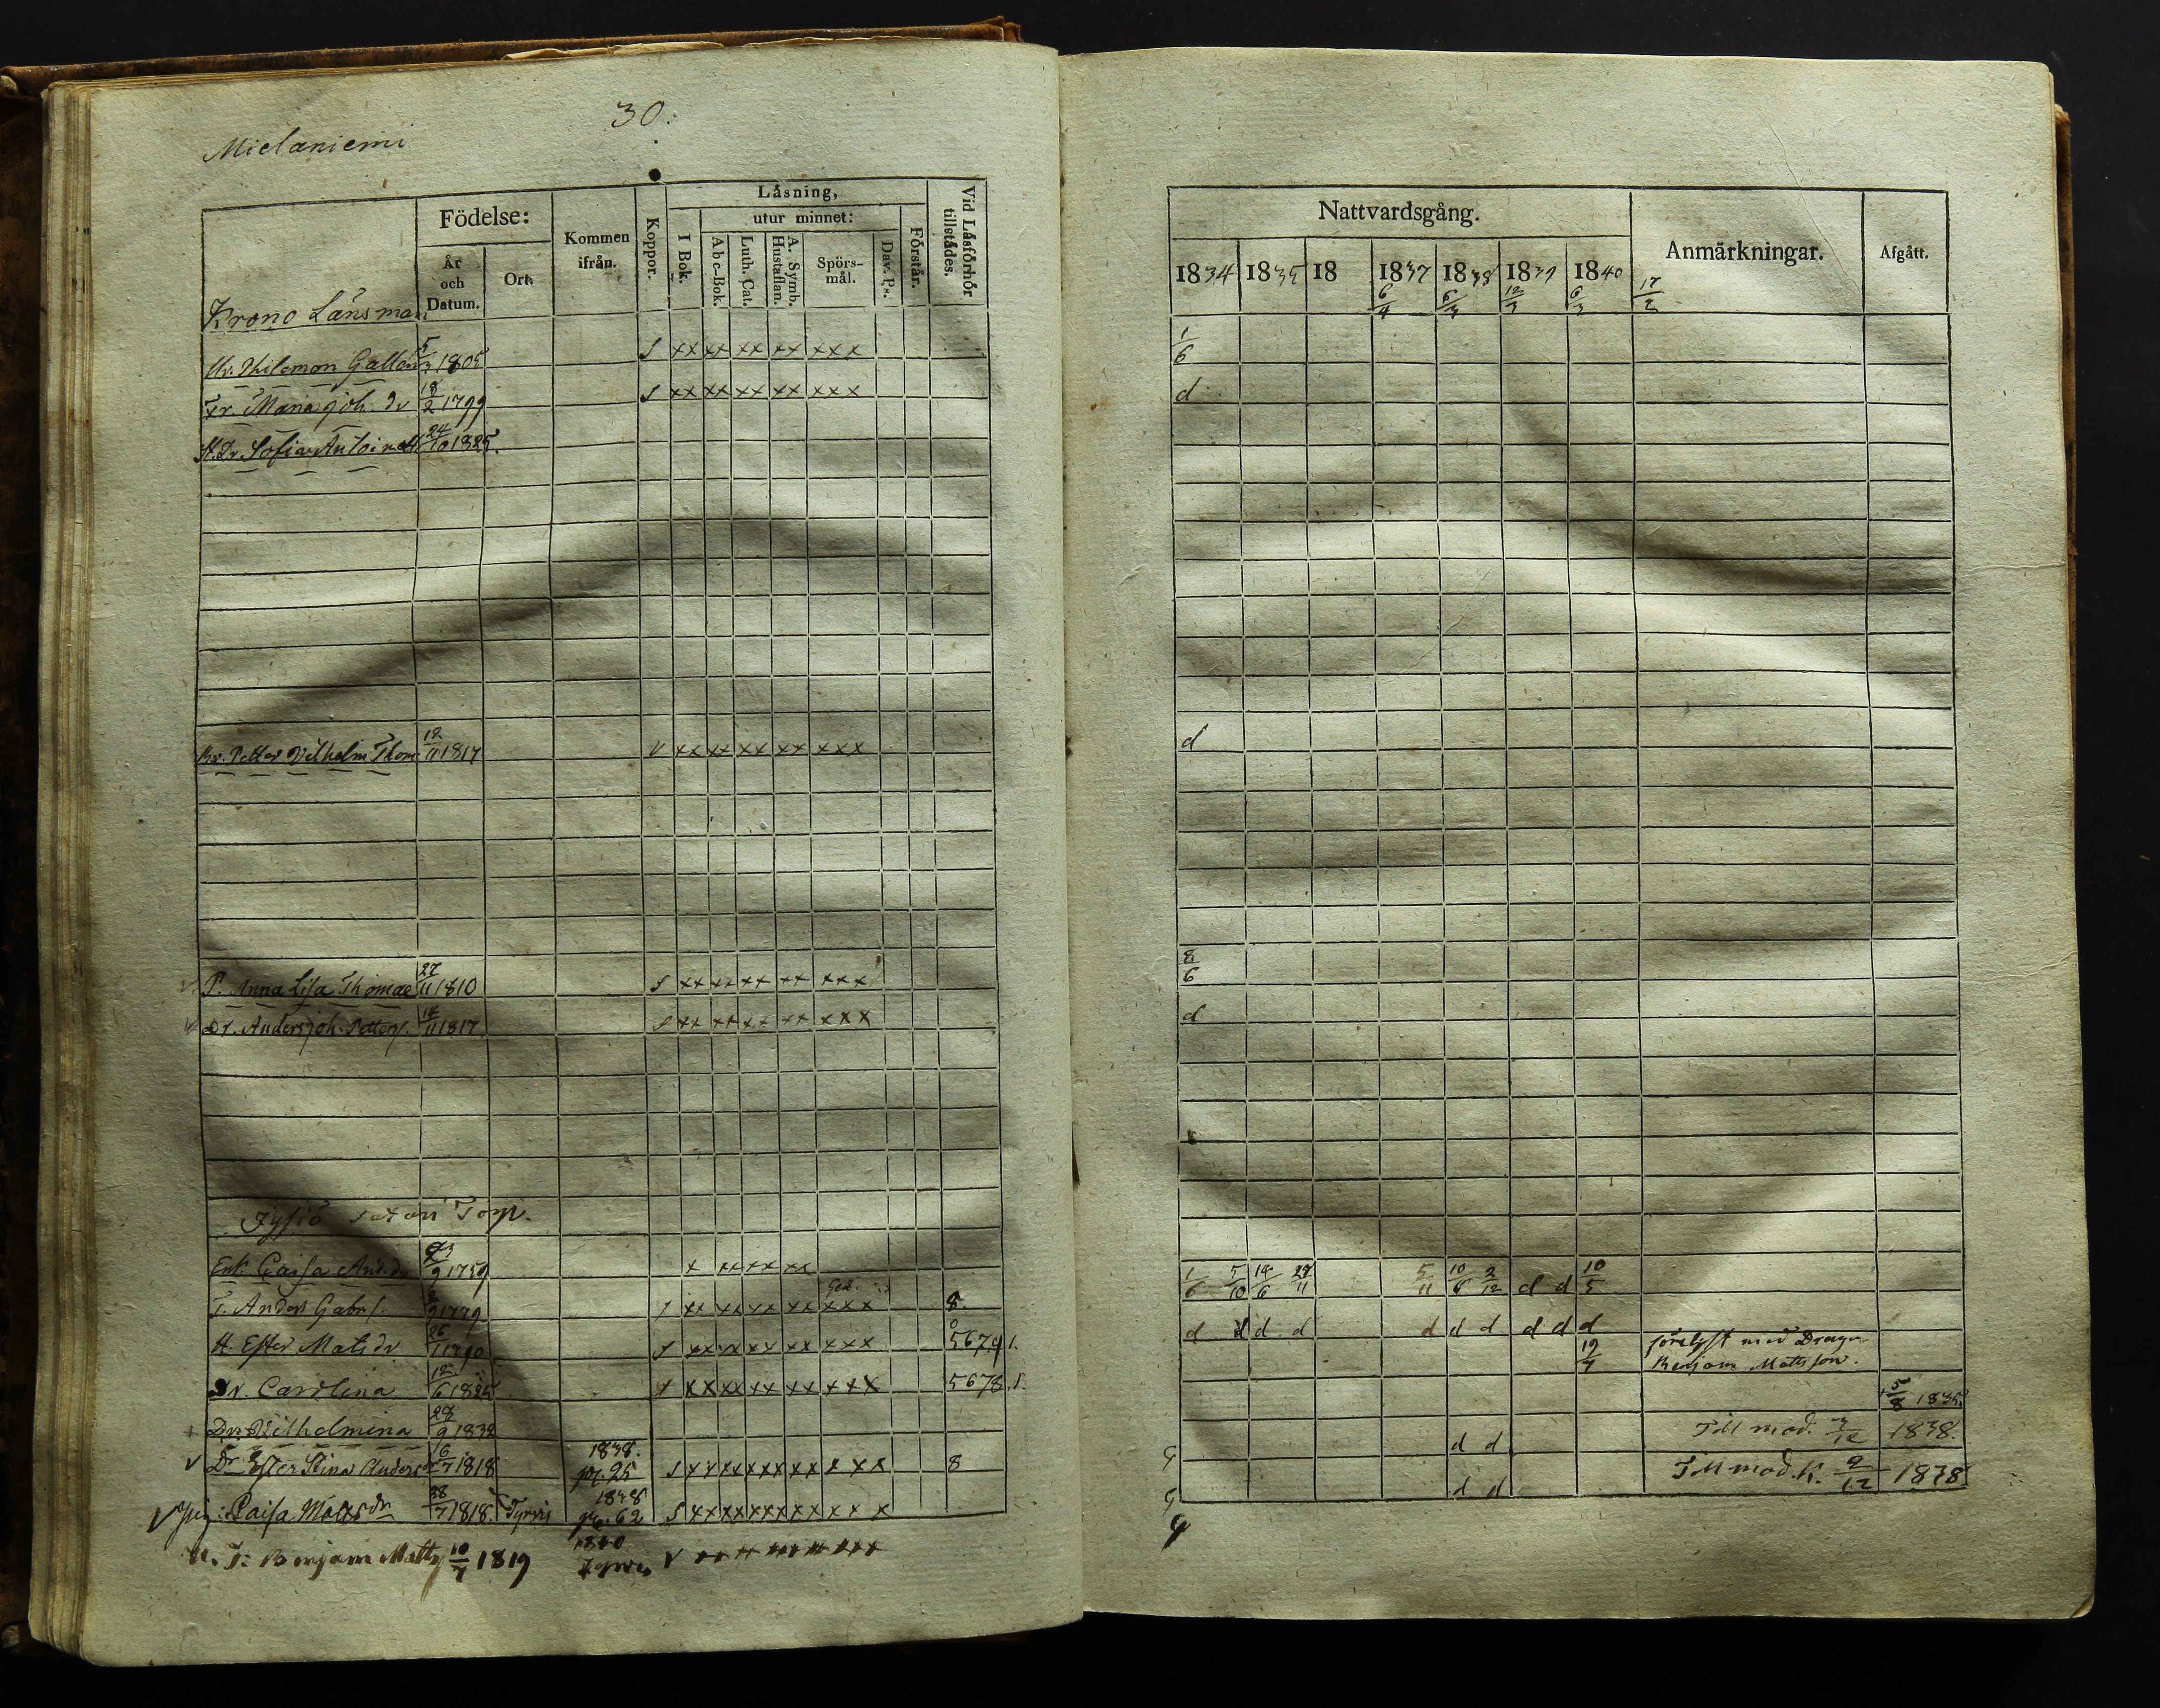 30.
Mielaniemi
Födelse:
År och Datum.
Ort.
Kommen ifrån.
Koppor.
Läsning,
utur minnet:
I Bok.
Abc-Bok.
Luth. Cat.
A. Symb. Hustaflan.
Spörs-mål.
Dav. Ps.
Förstår.
Vid Läsförhör tillstädes.
Krono Länsman
Hr. Philemon Gallen 1805
Fr. Maria Joh. dr 18/2 1799 S xx xx xx xx xxx
Dr. Sofia Antoinett 24/10 1825.
Petter Vilhelm Thom 12/11 1817 V xx xx xx xx xxx
P. Anna Lisa Thomae 27/11 1810 S xx xx xx xx xxx
Dr. Anders Joh. Petters. 14/11 1817 S xx xx xx xx xxx
Torp.
Enk. Caisa And. dr 9 1759 x xx xx xx
T. Anders Gabr. s. 1779 xx xx xx xx xxx 8.
H. Ester Mats dr 26/11 1790 S xx xx xx xx xxx
Dr. Carolina 12/6 1825 xx xx xx xx xxx 5678.
Dr. Vilhelmina 9 1832
Dr Ester Stina Anders dr 16/7 1818 1838. pg. 25 S xx xx xx xx x x x 8
Pig: Caisa Mattsdr 28/7 1818. Tyrvis 1838 pg. 62 S xx xx xx xx x x x
Benjam Matts 10/7 1819 1840 V
Nattvardsgång.
Anmärkningar.
Afgått.
1834 1835 18 1837 1838 1839 1840
6/4 6/4 12/3 6/3 17/2
1/6
d
d
8/6
d
1/6 5/10 14/6 29/11 5/11 10/6 2/12 d d 10/5
d d d d d d d d d d
19/7 förelyst med Dragon
Benjam Mattsson.
5/8 1835.
d d Till mod. 1838.
d d Till mod. K. 2/12 1838